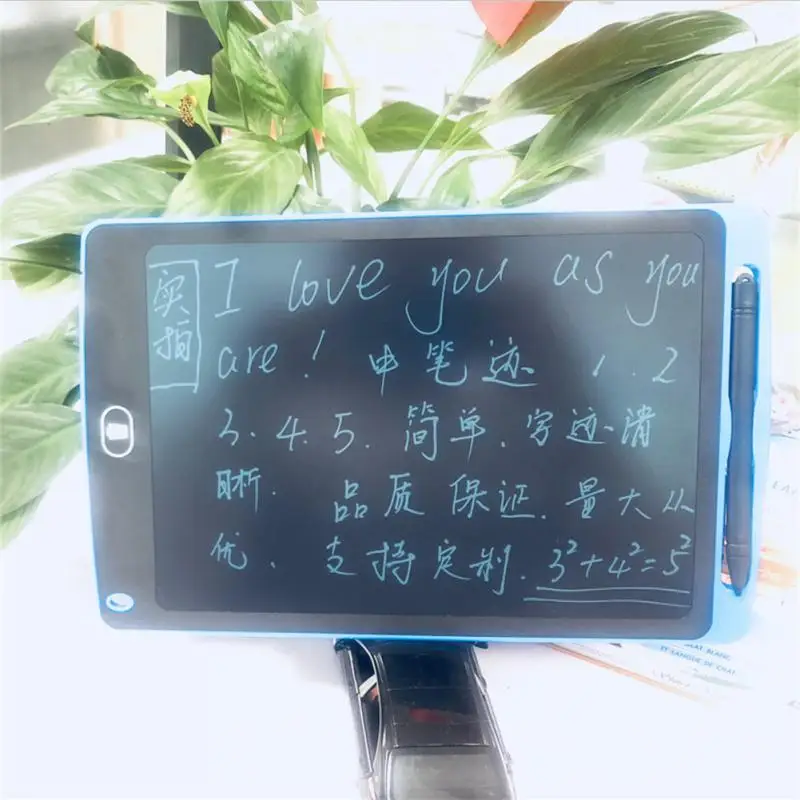 实拍
I love you as you
are! 中笔迹 1.2
3.4.5. 简单.字迹清
晰. 品质保证.量大从
优. 支持定制. 3²+4²=5²
BLANC
ET SANGUE DE CHAT